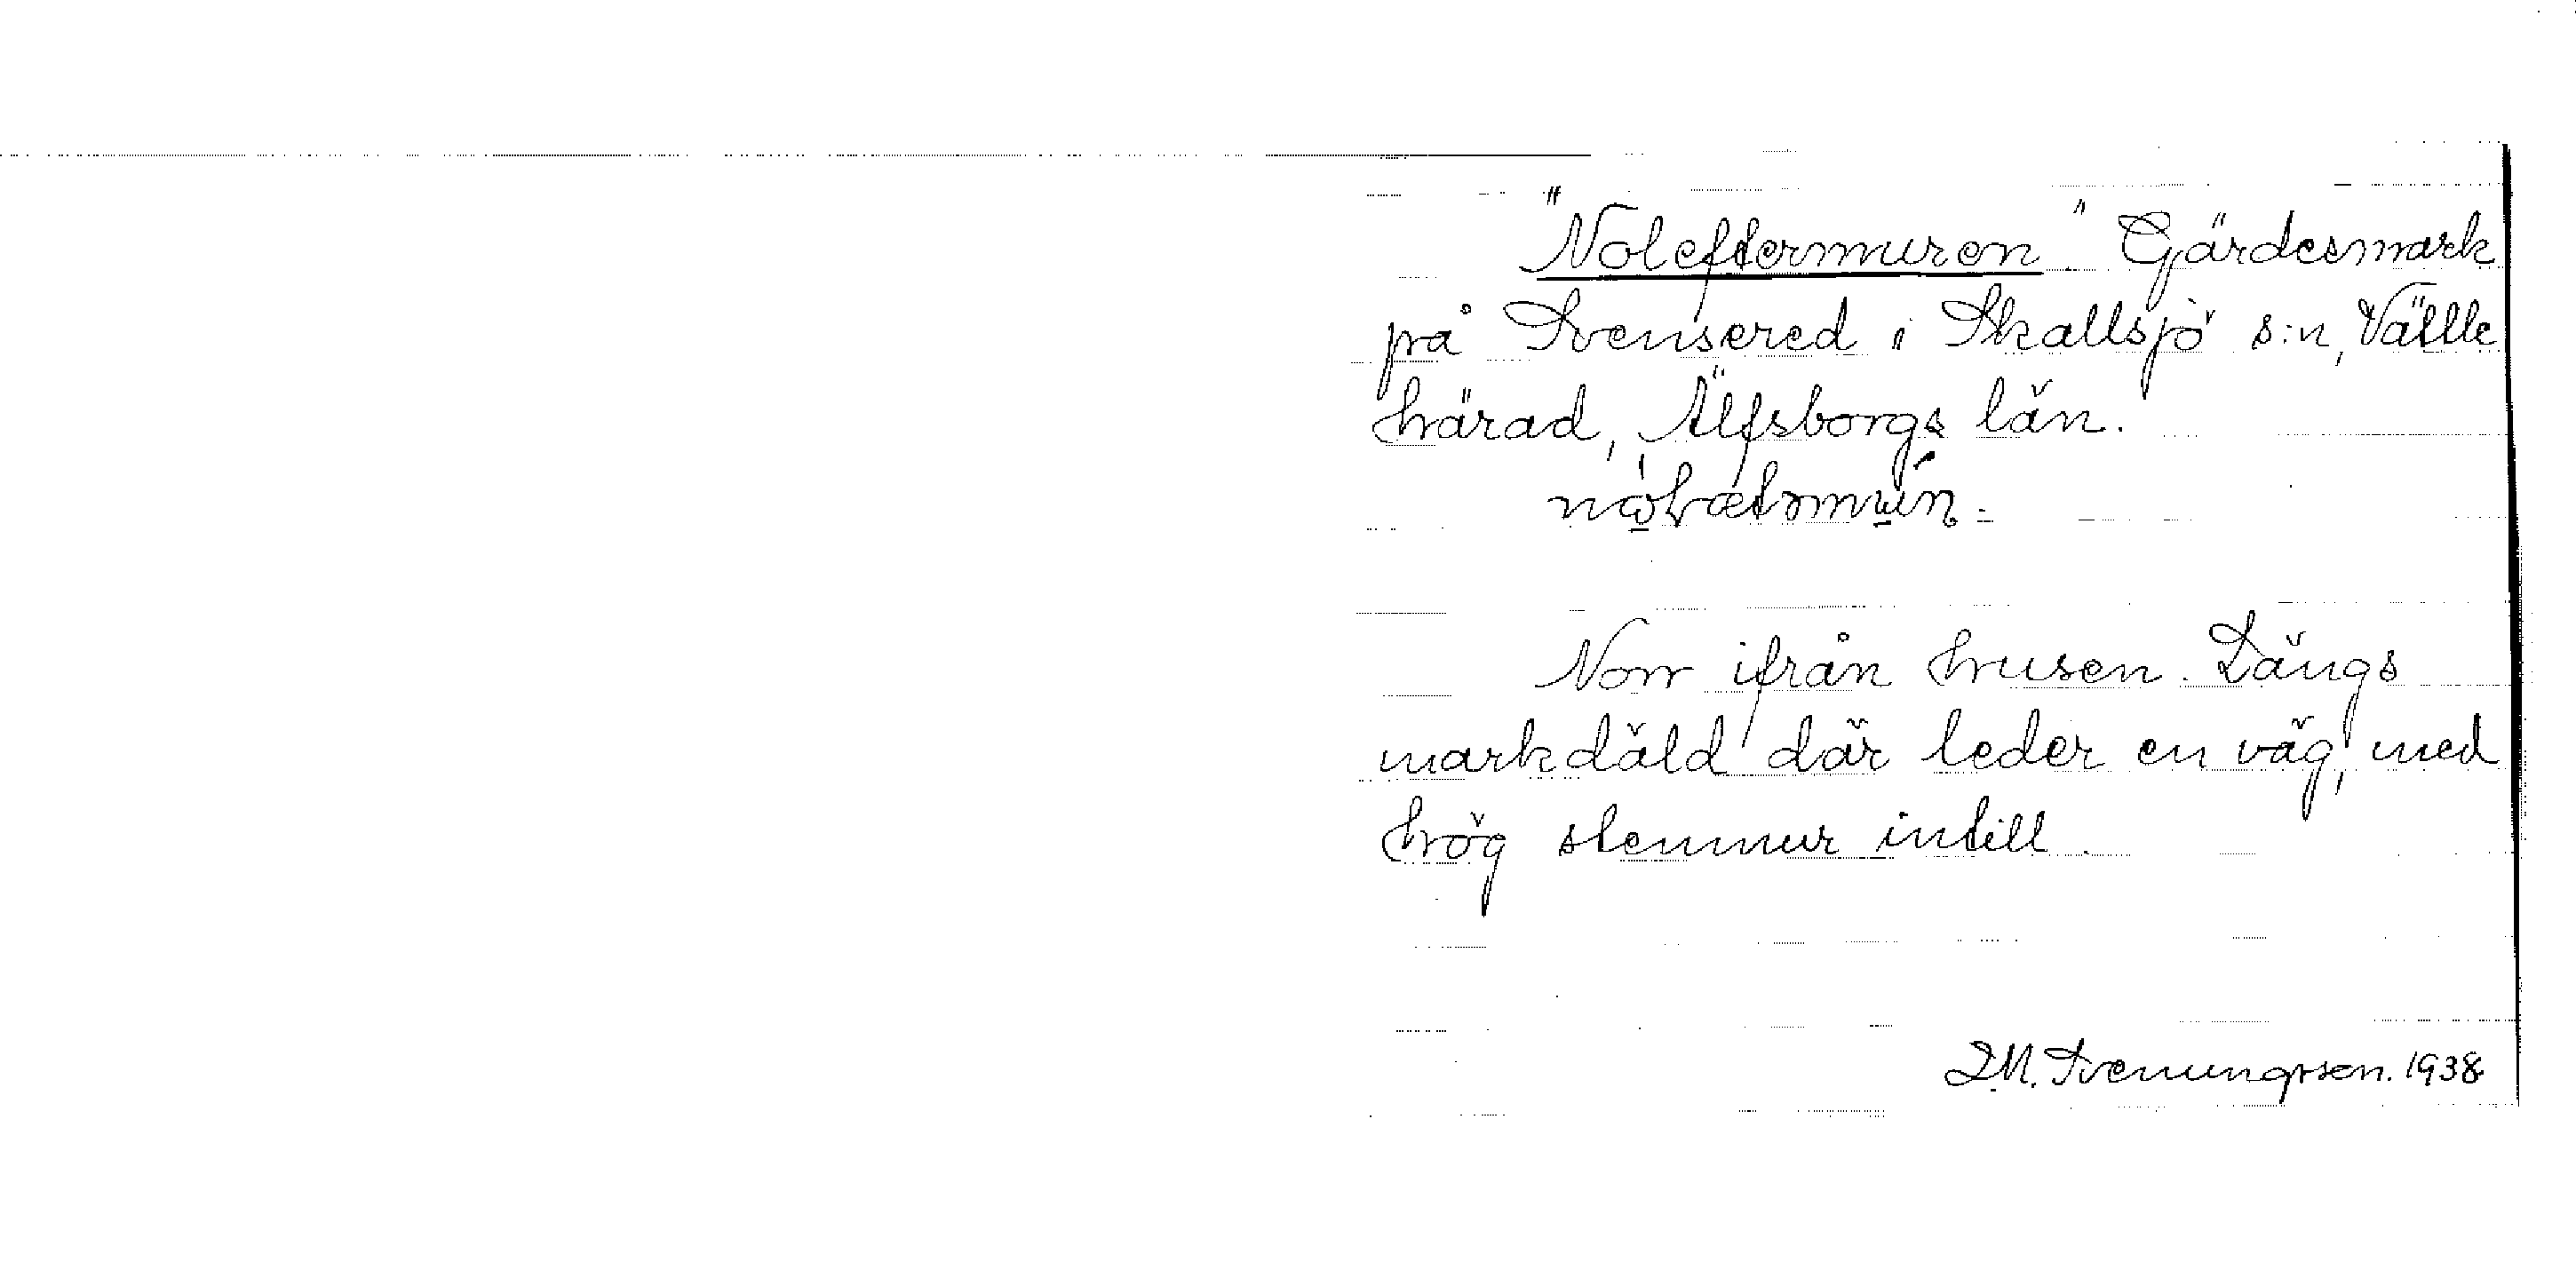 "Noleftermuren" Gärdesmark
på Svensered i Skallsjö s:n, Vättle
härad, Älfsborgs län.
Norr ifrån husen. Längs
markdäld där leder en väg, med
hög stenmur intill.
I.M. Svenungsson. 1938